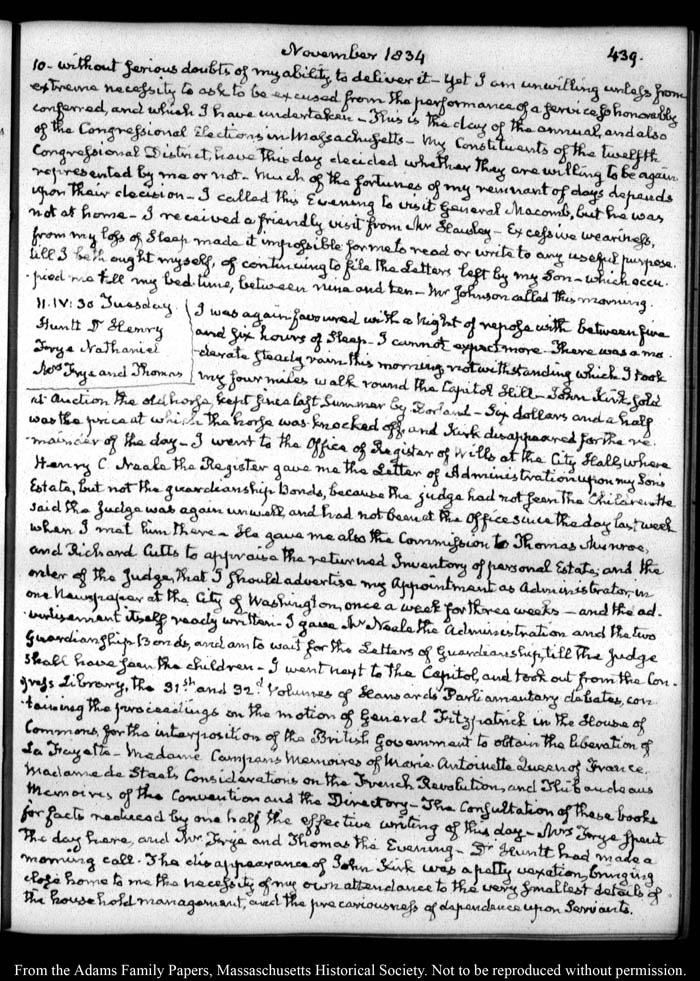 November 1834
439.
10- without serious doubts of my ability to deliver it - Yet I am unwilling unless from
extreme necessity to ask to be excused from the performance of a service so honorably
conferred, and which I have undertaken - This is the day of the annual, and also
of the Congressional Elections in Massachusetts - My Constituents of the twelfth
Congressional District, have this day decided whether they are willing to be again
represented by me or not - Much of the fortunes of my remnant of days depends
upon their decision - I called this Evening to visit General Macomb, but he was
not at home - I received a friendly visit from Mr Stansley - Excessive weariness,
from my loss of Sleep made it impossible for me to read or write to any useful purpose.
till I bethought myself, of continuing to file the Letters left by my Son - which occu-
-pied me till my bed-time, between nine and ten - Mr Johnson called this morning.
11. IV: 30 Tuesday.
Huntt Dr Henry
Frye Nathaniel
Mrs Frye and Thomas
I was again favoured with a Night of repose with between five
and six hours of Sleep - I cannot expect more - There was a mo-
-derate steady rain this morning, notwithstanding which I took
my four miles walk round the Capitol Hill - John Kirk sold
at Auction the old horse, kept since last Summer by Borland - Six dollars and a half
was the price at which the horse was knocked off, and Kirk disappeared for the re-
-mainder of the day - I went to the Office of Register of Wills at the City Hall, where
Henry C. Neale the Register gave me the Letter of Administration upon my Son's
Estate, but not the guardianship bonds, because the Judge had not seen the Children. He
said the Judge was again unwell, and had not been at the Office since the day last week
when I met him there - He gave me also the Commission to Thomas Munroe,
and Richard Cutts to appraise the returned Inventory of personal Estate; and the
order of the Judge, that I should advertise my Appointment as Administrator, in
one Newspaper at the City of Washington, once a week for three weeks - and the ad-
-vertisement itself ready written - I gave Mr Neale the Administration and the two
Guardianship Bonds, and am to wait for the Letters of Guardianship, till the Judge
shall have seen the children - I went next to the Capitol, and took out from the Con-
gress Library, the 31st and 32d Volumes of Hansard's Parliamentary debates, con-
-taining the proceedings on the motion of General Fitzpatrick in the House of
Commons, for the interposition of the British Government to obtain the liberation of
La Fayette - Madame Campan's Memoires of Marie Antoinette Queen of France,
Madame de Stael's Considerations on the French Revolution, and Thibaudeaus
Memoires of the Convention and the Directory - The Consultation of these books
for facts reduced by one half the effective writing of this day - Mrs Frye spent
the day here, and Mr Frye and Thomas the Evening - Dr Huntt had made a
morning call. The disappearance of John Kirk was a petty vexation, bringing
close home to me the necessity of my own attendance to the very smallest details of
the household management, and the precariousness of dependence upon Servants.
From the Adams Family Papers, Massachusetts Historical Society. Not to be reproduced without permission.